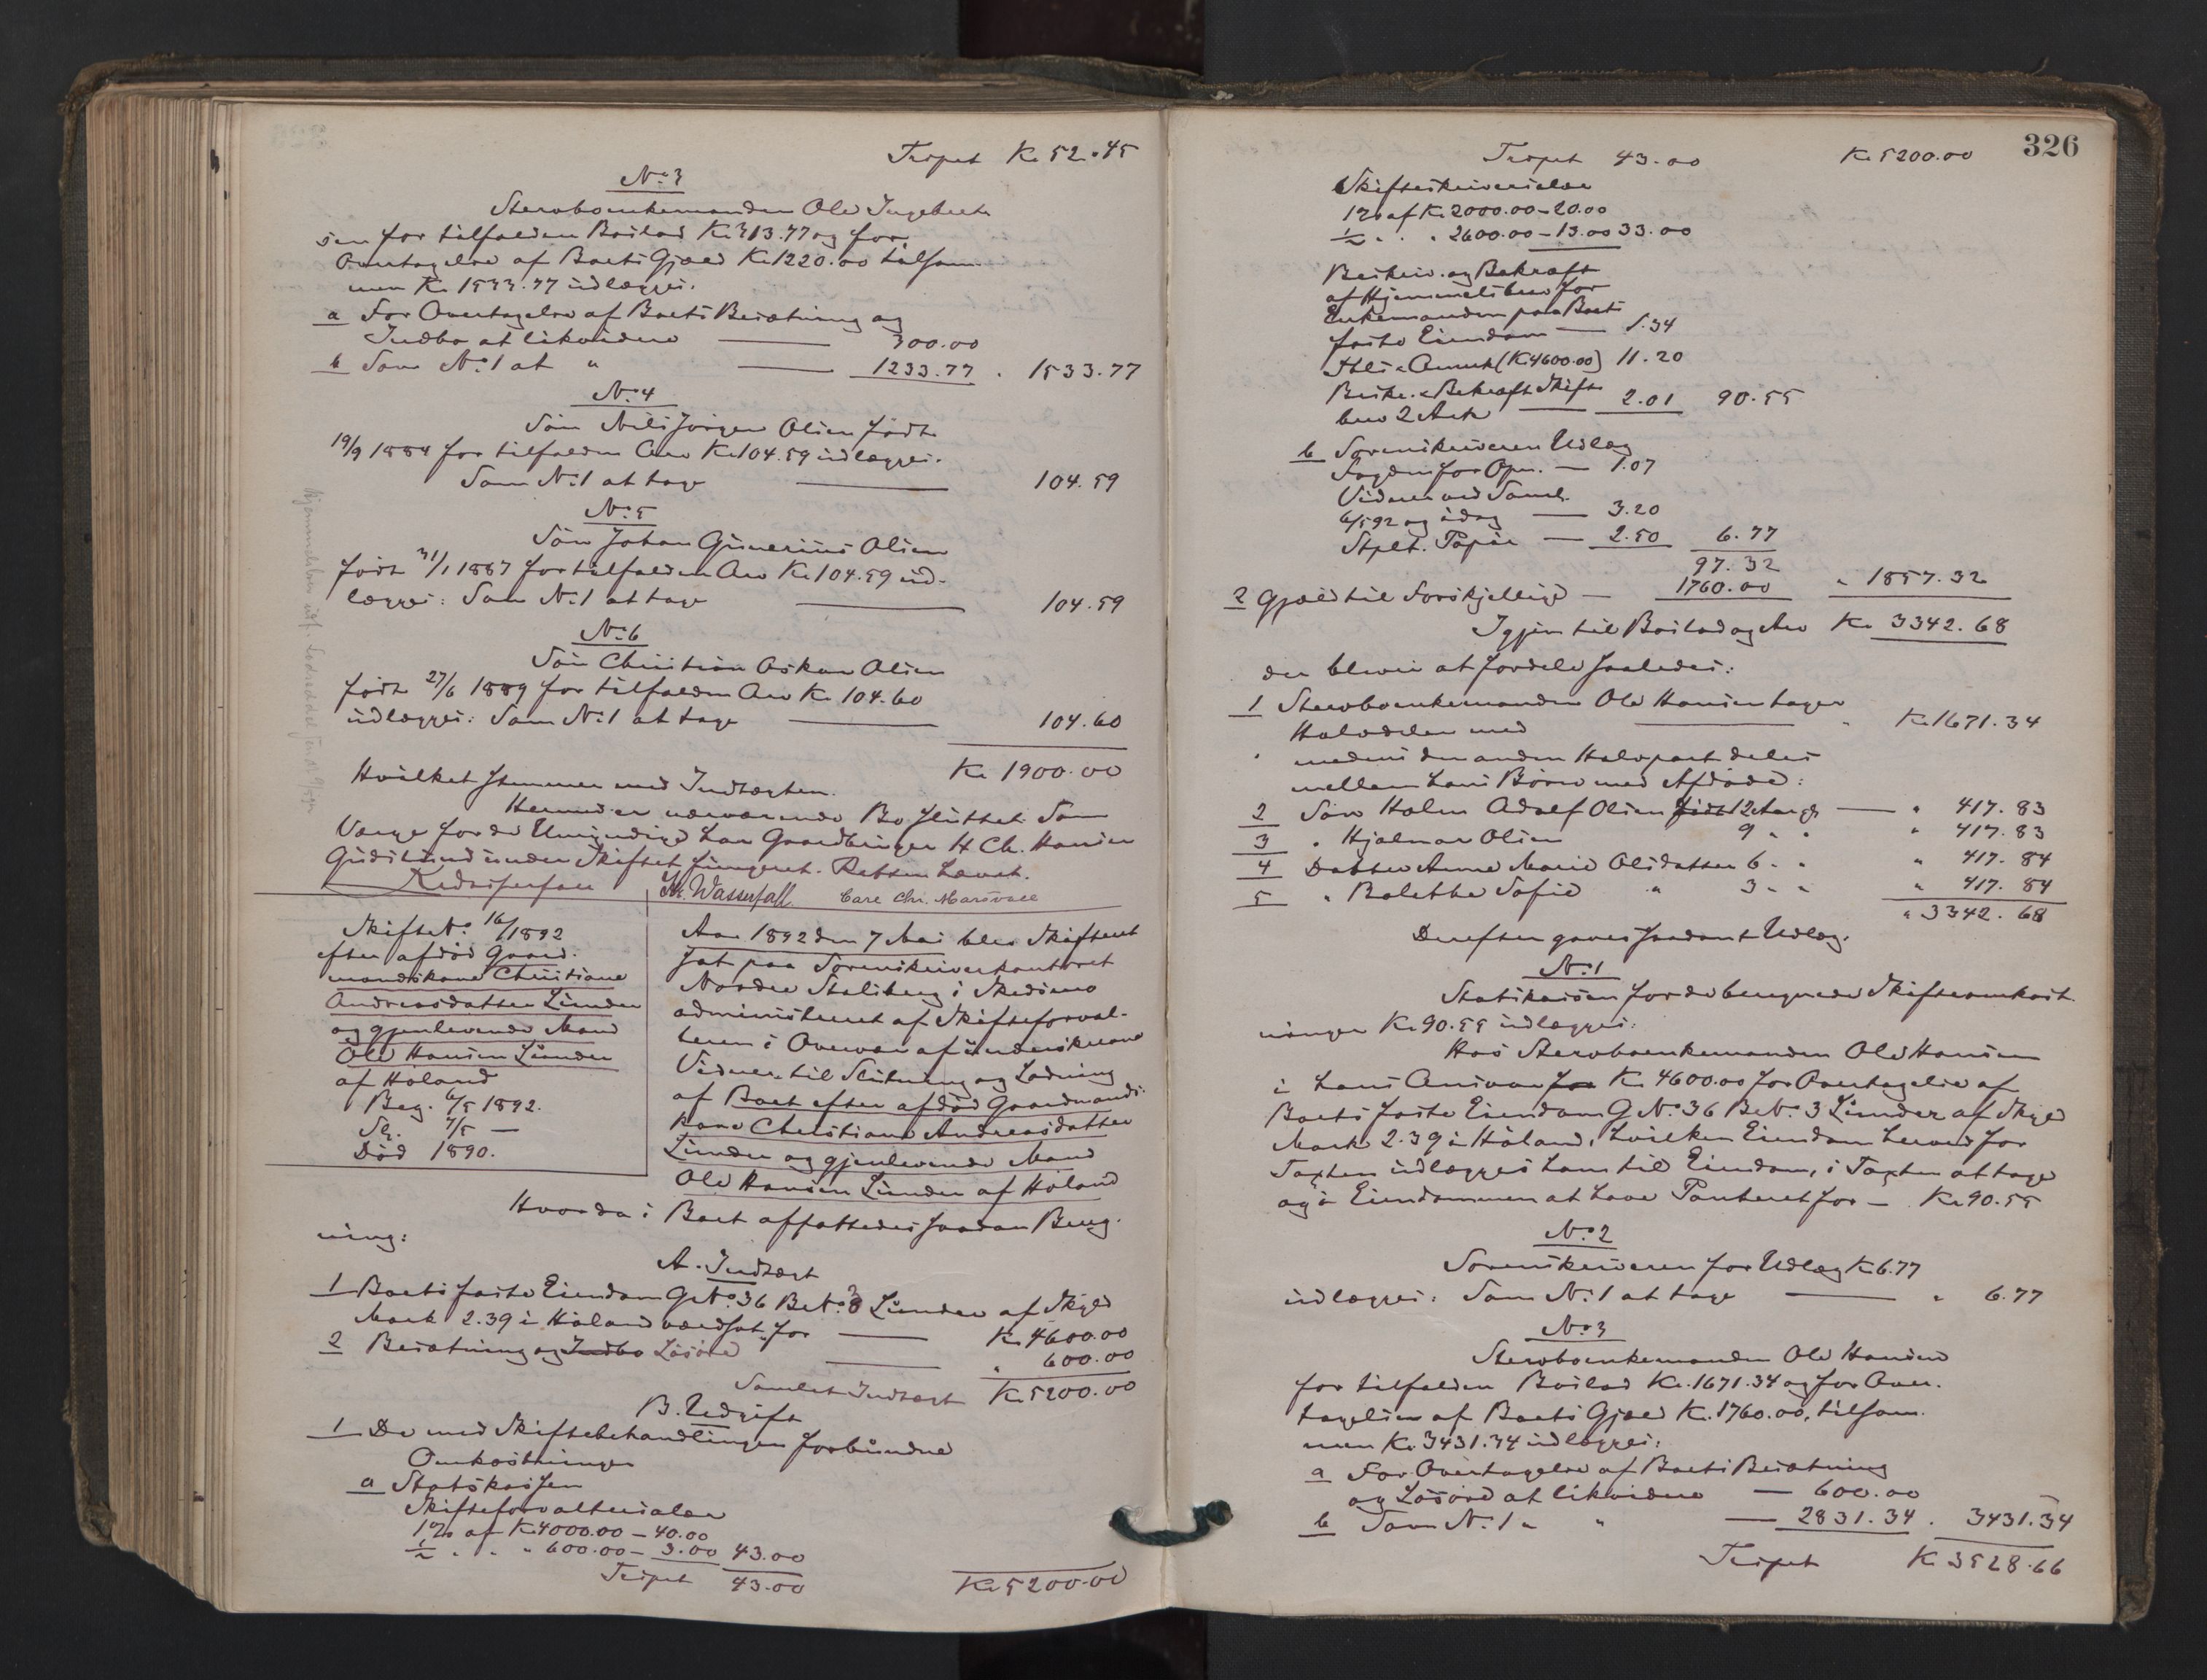 Trspt Kr 52.45
No 3
Stervboenkemanden Ole Ingebret-
sen for tilfalden Boslod Kr 313.77 og for
Overtagelse af Boets Gjæld Kr 1220.00 tilsam-
men Kr 1533.77 udlægges.
a For Overtagelse af Boets Besætning og
Indbo at likvidere — 300.00
b Som No 1 at " — 1233.77 " 1533.77
No 4
Søn Nils Jørgen Olsen født
19/9 1884 for tilfalden Arv Kr 104.59 udlægges.
Som No 1 at tage — 104.59
No 5
Søn Johan Gunerius Olsen
født 31/1 1887 for tilfalden Arv Kr 104.59 ud-
lægges: Som No 1 at tage — 104.59
No 6
Søn Christian Oskar Olsen
født 27/6 1889 for tilfalden Arv Kr 104.60
udlægges: Som No 1 at tage — 104.60
Kr 1900.00
Hvilket stemmer med Indtægten.
Hermed er nærværende Bo sluttet. Som
Værge for de Umyndige har Gaardbruger H. Ch. Hansen
under Skiftet fungeret. Retten hævet.
M. Wasserfall Carl Chr. Marsvall
Skifte No 16/1892
efter afdød Gaard-
mandskone Christiane
Andreasdatter Lunder
og gjenlevende Mand
Ole Hansen Lunder
af Høland
Beg. 6/5 1892.
Sl. 7/5 —
Død 1890.
Aar 1892 den 7 Mai blev Skifteret
sat paa Sorenskriverkontoret
Nordre Stalsberg i Skedsmo
administreret af Skifteforval-
teren i Overvær af underskrevne
Vidner til Slutning og Lodning
af Boet efter afdød Gaardmands-
kone Christiane Andreasdatter
Lunder og gjenlevende Mand
Ole Hansen Lunder af Høland
Hvorda i Boet affattedes saadan Bereg-
ning:
A. Indtægt
1 Boets faste Eiendom G No 36 B No 3 Lunder af Skyld
Mark 2.39 i Høland værdsat for — Kr 4600.00
2 Besætning og Indbo Løsøre — " 600.00
Samlet Indtægt Kr 5200.00
B. Udgift
1 De med Skiftebehandlingen forbundne
Omkostninger
a Statskassen
Skifteforvaltersalær
1% af Kr 4000.00 – 40.00
½ " " " 600.00 – 3.00 43.00
Trspt 43.00 Kr 5200.00
326
Trspt 43.00 Kr 5200.00
Skifteskriversalær
1% af Kr 2000.00 – 20.00
½ " " " 2600.00 – 13.00 33.00
Beskriv. og Bekræft
af Hjemmelsbrev for
Enkemanden paa Boets
faste Eiendom —
Thl. " Anmrk (Kr 4600.00) 11.20
Beskr. " Bekræft Skifte-
brev 2 Ark — 2.01 90.55
b Sorenskriverens Udlæg
Fogden for Opn. — 1.07
Vidner ved Saml.
6/5 92 og idag — 3.20
Stplt. Papir — 2.50 6.77
97.32
2 Gjæld til Forskjellige — 1760.00 " 1857.32
Igjen til Boslod og Arv Kr 3342.68
der bliver at fordele saaledes:
1 Stervboenkemanden Ole Hansen tager
Halvdelen med — Kr 1671.34
medens den anden Halvpart deles
mellem hans Børn med Afdøde:
2 Søn Halm Adolf Olsen født 12 Aar gl — " 417.83
3 " Hjalmar Olsen 9 " " " 417.83
4 Datter Anne Marie Olsdatter 6 " " " 417.84
5 " Bolette Sofie " 3 " " " 417.84
" 3342.68
Derefter gaves saadant Udlæg.
No 1
Statskassen for de beregnede Skifteomkost-
ninger Kr 90.55 udlægges:
Hos Stervboenkemanden Ole Hansen
i hans Ansvar for Kr 4600.00 for Overtagelse af
Boets faste Eiendom G No 36 B No 3 Lunder af Skyld
Mark 2.39 i Høland, hvilken Eiendom herved for
Taxten udlægges ham til Eiendom, i Taxten at tage
og i Eiendommen at have Panteret for — Kr 90.55
No 2
Sorenskriveren for Udlæg Kr 6.77
udlægges: Som No 1 at tage — " 6.77
No 3
Stervboenkemanden Ole Hansen
for tilfalden Boslod Kr. 1671.34 og for Over-
tagelsen af Boets Gjæld Kr. 1760.00, tilsam-
men Kr 3431.34 udlægges:
a For Overtagelse af Boets Besætning
og Løsøre at likvidere — 600.00
b Som No 1 " " — 2831.34 " 3431.34
Trspt Kr 3528.66